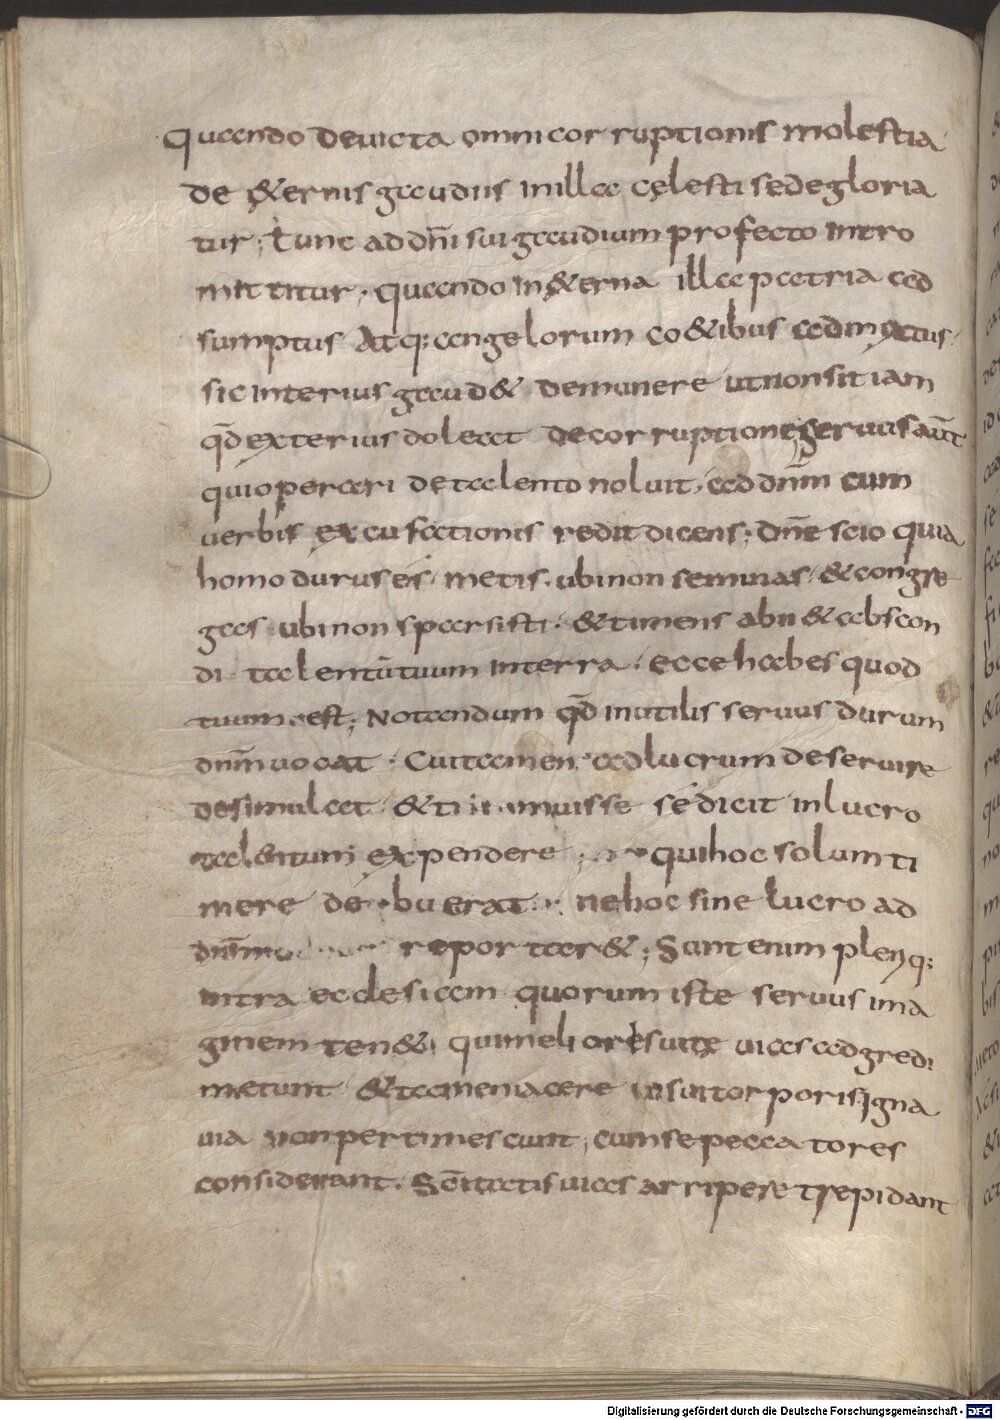 Quando deuicta omni corruptionis molestia
de &ernis gaudiis in illa cęlesti sede gloria
tur; Tunc ad dn̄i sui gaudium profecto intro
mittitur; quando in &erna illa patria ad
sumptus Atq; angelorum co&ibus admixtus.
sic interius gaud& de munere ut non sit iam
qd̄ exterius doleat de corruptione; seruus aut̄
qui operari de talento noluit, ad dnm̄ cum
uerbis excusationis redit dicens; Dn̄e scio quia
homo durus es. metis. ubi non seminas. & congre
gas ubi non sparsisti. & timens abii & abscon
di talentū tuum in terra. ecce habes quod
tuum est; Notandum qd̄ inutilis seruus durum
dnm̄ uocat. Cui tamen ad lucrum deseruire
desimulat. & timuisse se dicit in lucro
talentum expendere; qui hoc solum ti
mere debuerat. ne hoc sine lucro ad
dnm̄ reportar&; Sunt enim pleriq;
intra ecclesiam quorum iste seruus ima
ginem ten& qui melioris uitę uias adgredi
metunt & tamen iacere in sui torporis igna
uia non pertimescunt; cum se peccatores
considerant. Sc̄itatis uias arripere trepidant
Digitalisierung gefördert durch die Deutsche Forschungsgemeinschaft - DFG